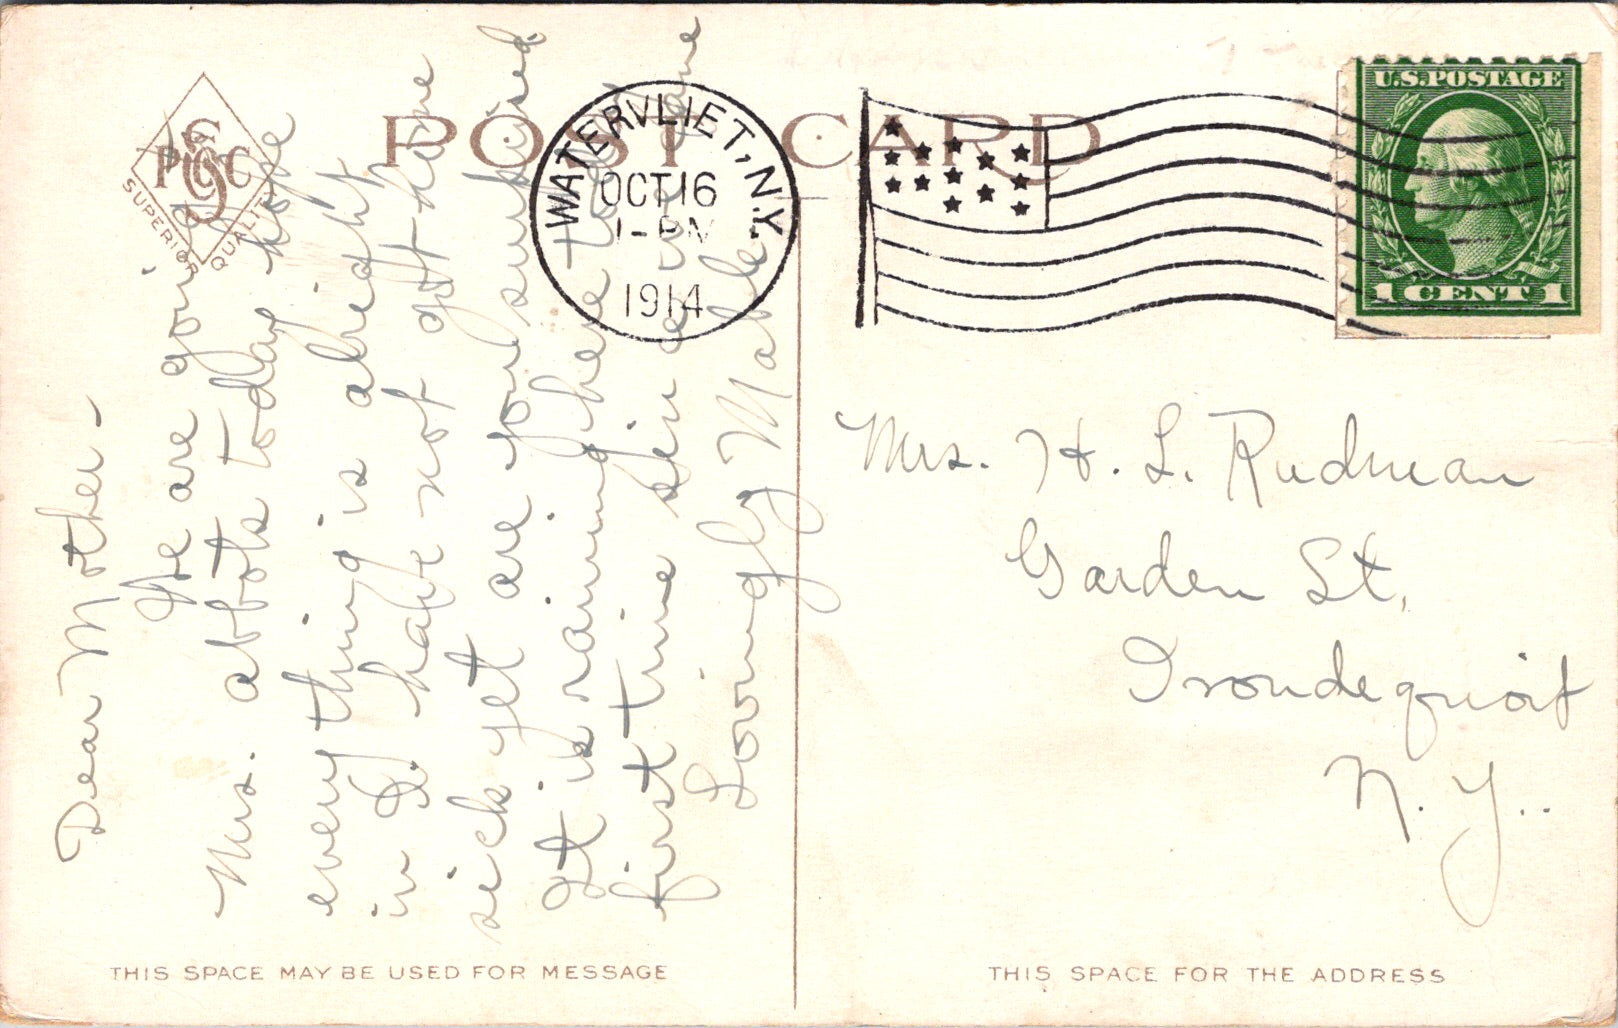 POST CARD
S
P C C
SUPERIOR QUALITY
WATERVLIET, N.Y.
OCT 16
1-PM
1914
U.S. POSTAGE
1 CENT 1
Dear Mother-
We are going to
Mrs. Abbots today hope
every thing is alright
in I. have not got home
sick yet are you suprised
It is raining here to day
first time sin ce we
Lovingly Mable
Mrs. H. L. Rudman
Garden St,
Irondequoit
N. Y..
THIS SPACE MAY BE USED FOR MESSAGE
THIS SPACE FOR THE ADDRESS